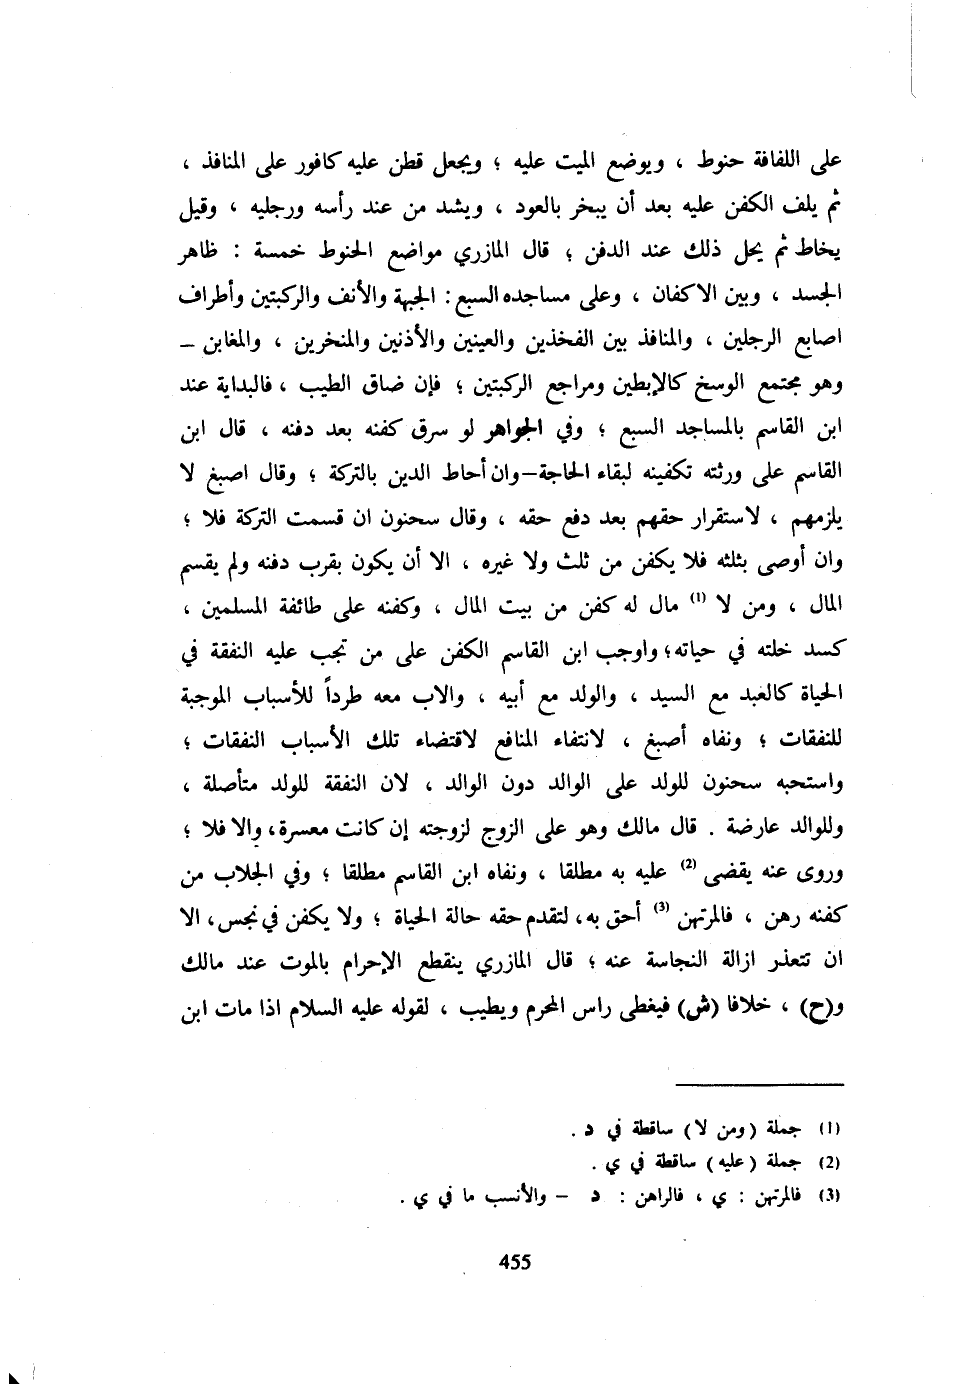 على اللفافة حنوط ، ويوضع الميت عليه ؛ ويجعل قطن عليه كافور على المنافذ ،
ثم يلف الكفن عليه بعد أن يبخر بالعود ، ويشد من عند رأسه ورجليه ، وقيل
يخاط ثم يحل ذلك عند الدفن ؛ قال المازري مواضع الحنوط خمسة : ظاهر
الجسد ، وبين الاكفان ، وعلى مساجده السبع : الجبهة والأنف والركبتين وأطراف
اصابع الرجلين ، والمنافذ بين الفخذين والعينين والأذنين والمنخرين ، والمغابن –
وهو مجتمع الوسخ كالإبطين ومراجع الركبتين ؛ فإن ضاق الطيب ، فالبداية عند
ابن القاسم بالمساجد السبع ؛ وفي الجواهر لو سرق كفنه بعد دفنه ، قال ابن
القاسم على ورثته تكفينه لبقاء الحاجة–وان أحاط الدين بالتركة ؛ وقال اصبغ لا
يلزمهم ، لاستقرار حقهم بعد دفع حقه ، وقال سحنون ان قسمت التركة فلا ؛
وان أوصى بثلثه فلا يكفن من ثلث ولا غيره ، الا أن يكون بقرب دفنه ولم يقسم
المال ، ومن لا (1) مال له كفن من بيت المال ، وكفنه على طائفة المسلمين ،
كسد خلته في حياته؛ واوجب ابن القاسم الكفن على من تجب عليه النفقة في
الحياة كالعبد مع السيد ، والولد مع أبيه ، والاب معه طرداً للأسباب الموجبة
للنفقات ؛ ونفاه أصبغ ، لانتفاء المنافع لاقتضاء تلك الأسباب النفقات ؛
واستحبه سحنون للولد على الوالد دون الوالد ، لان النفقة للولد متأصلة ،
وللوالد عارضة . قال مالك وهو على الزوج لزوجته إن كانت معسرة، والا فلا ؛
وروى عنه يقضى (2) عليه به مطلقا ، ونفاه ابن القاسم مطلقا ؛ وفي الجلاب من
كفنه رهن ، فالمرتهن (3) أحق به، لتقدم حقه حالة الحياة ؛ ولا يكفن في نجس، الا
ان تتعذر ازالة النجاسة عنه ؛ قال المازري ينقطع الإحرام بالموت عند مالك
و(ح) ، خلافا (ش) فيغطى راس المحرم ويطيب ، لقوله عليه السلام اذا مات ابن
(1) جملة (ومن لا) ساقطة في د .
(2) جملة (عليه) ساقطة في ي .
(3) فالمرتهن : ي ، فالراهن : د – والأنسب ما في ي .
455